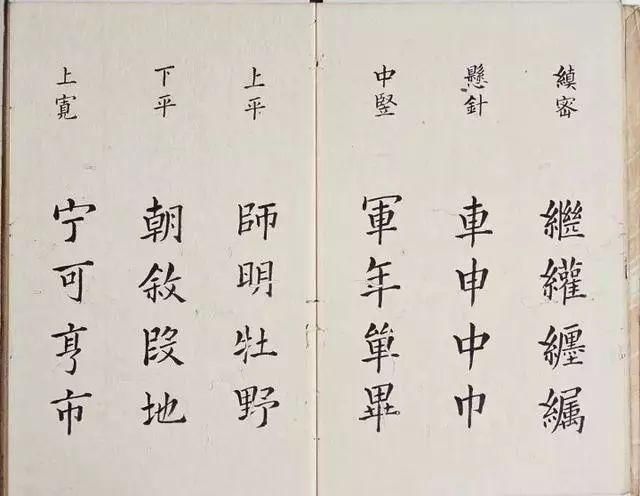 縝密
繼纙纏纊
懸針
車申中巾
中竪
軍年單畢
上平
師明牡野
下平
朝敘段地
上寬
宁可亨市